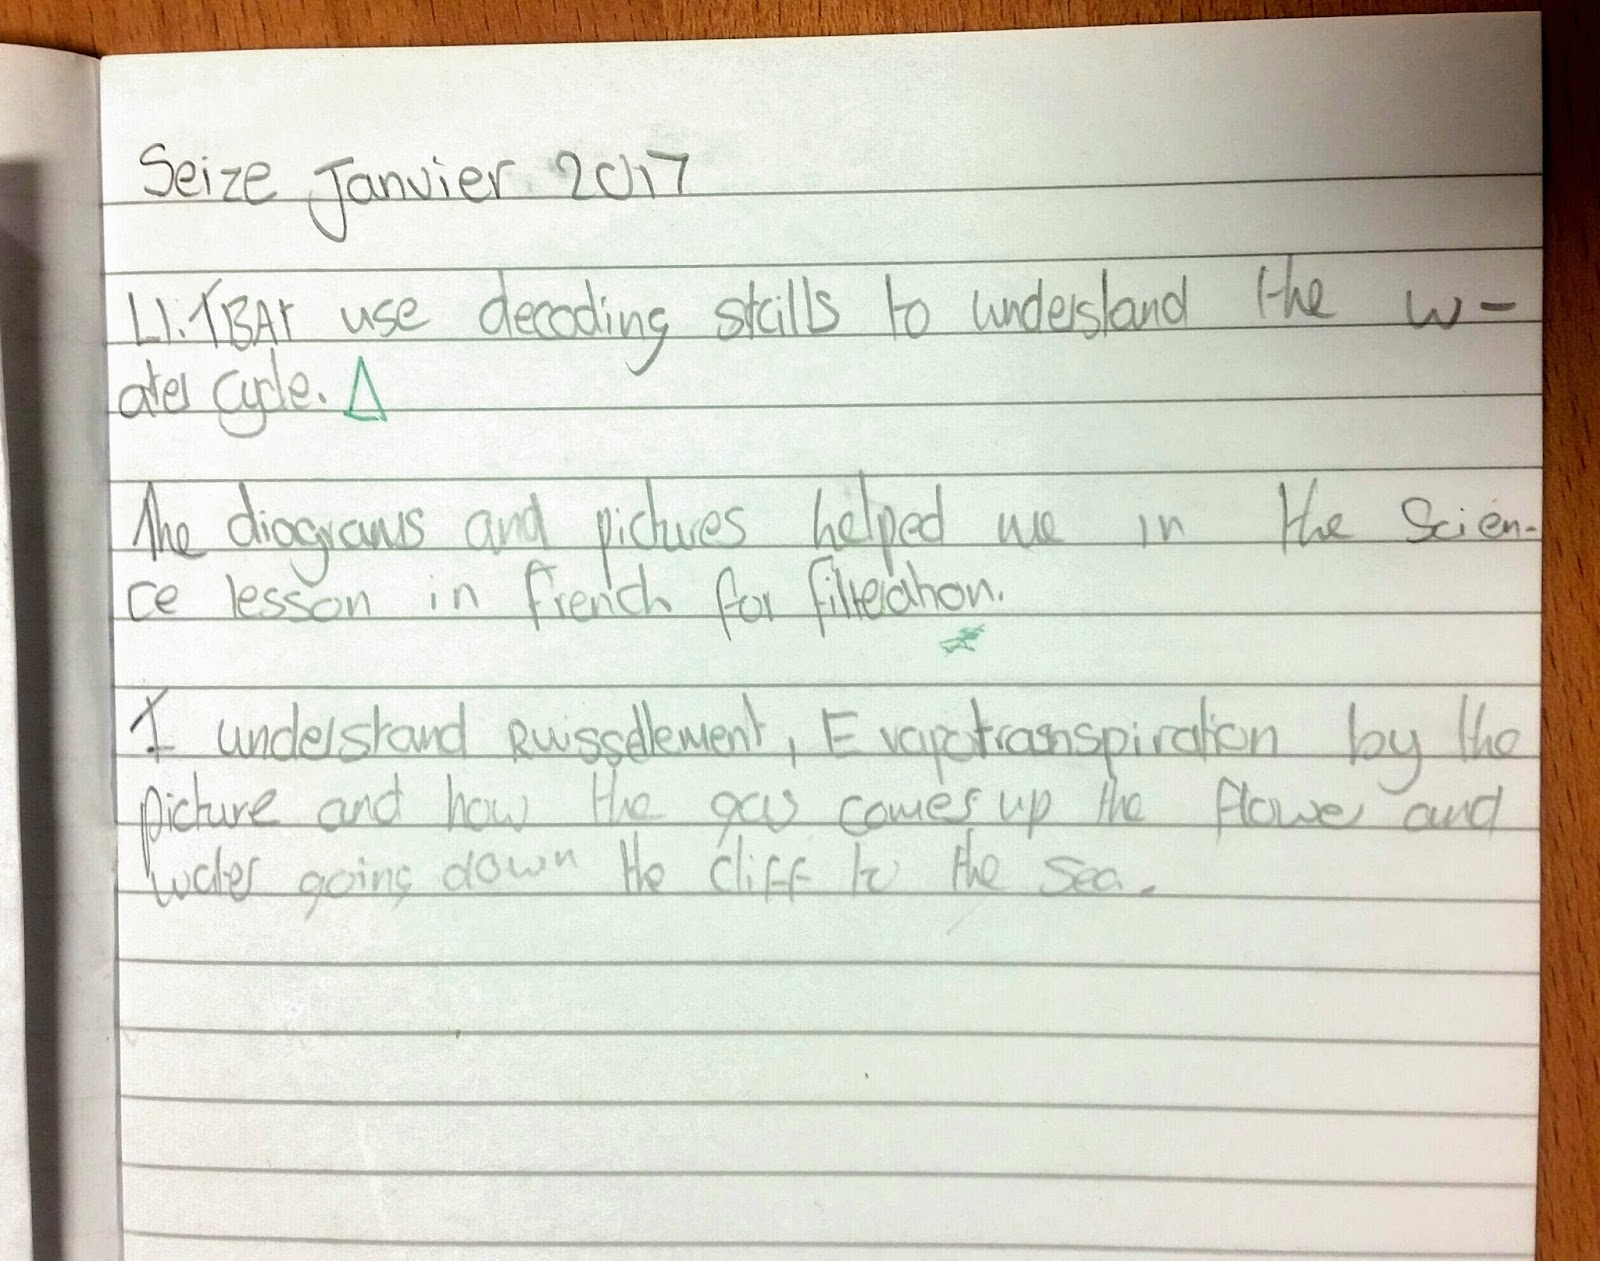 Seize Janvier 2017
LI.TBAT use decoding skills to understand the w-
ater cycle. Δ
The diagrams and pictures helped me in the Scien-
ce lesson in french for filteration.
I understand Ruissellement, Evapotranspiration by the
picture and how the gas comes up the flower and
water going down the cliff to the sea.